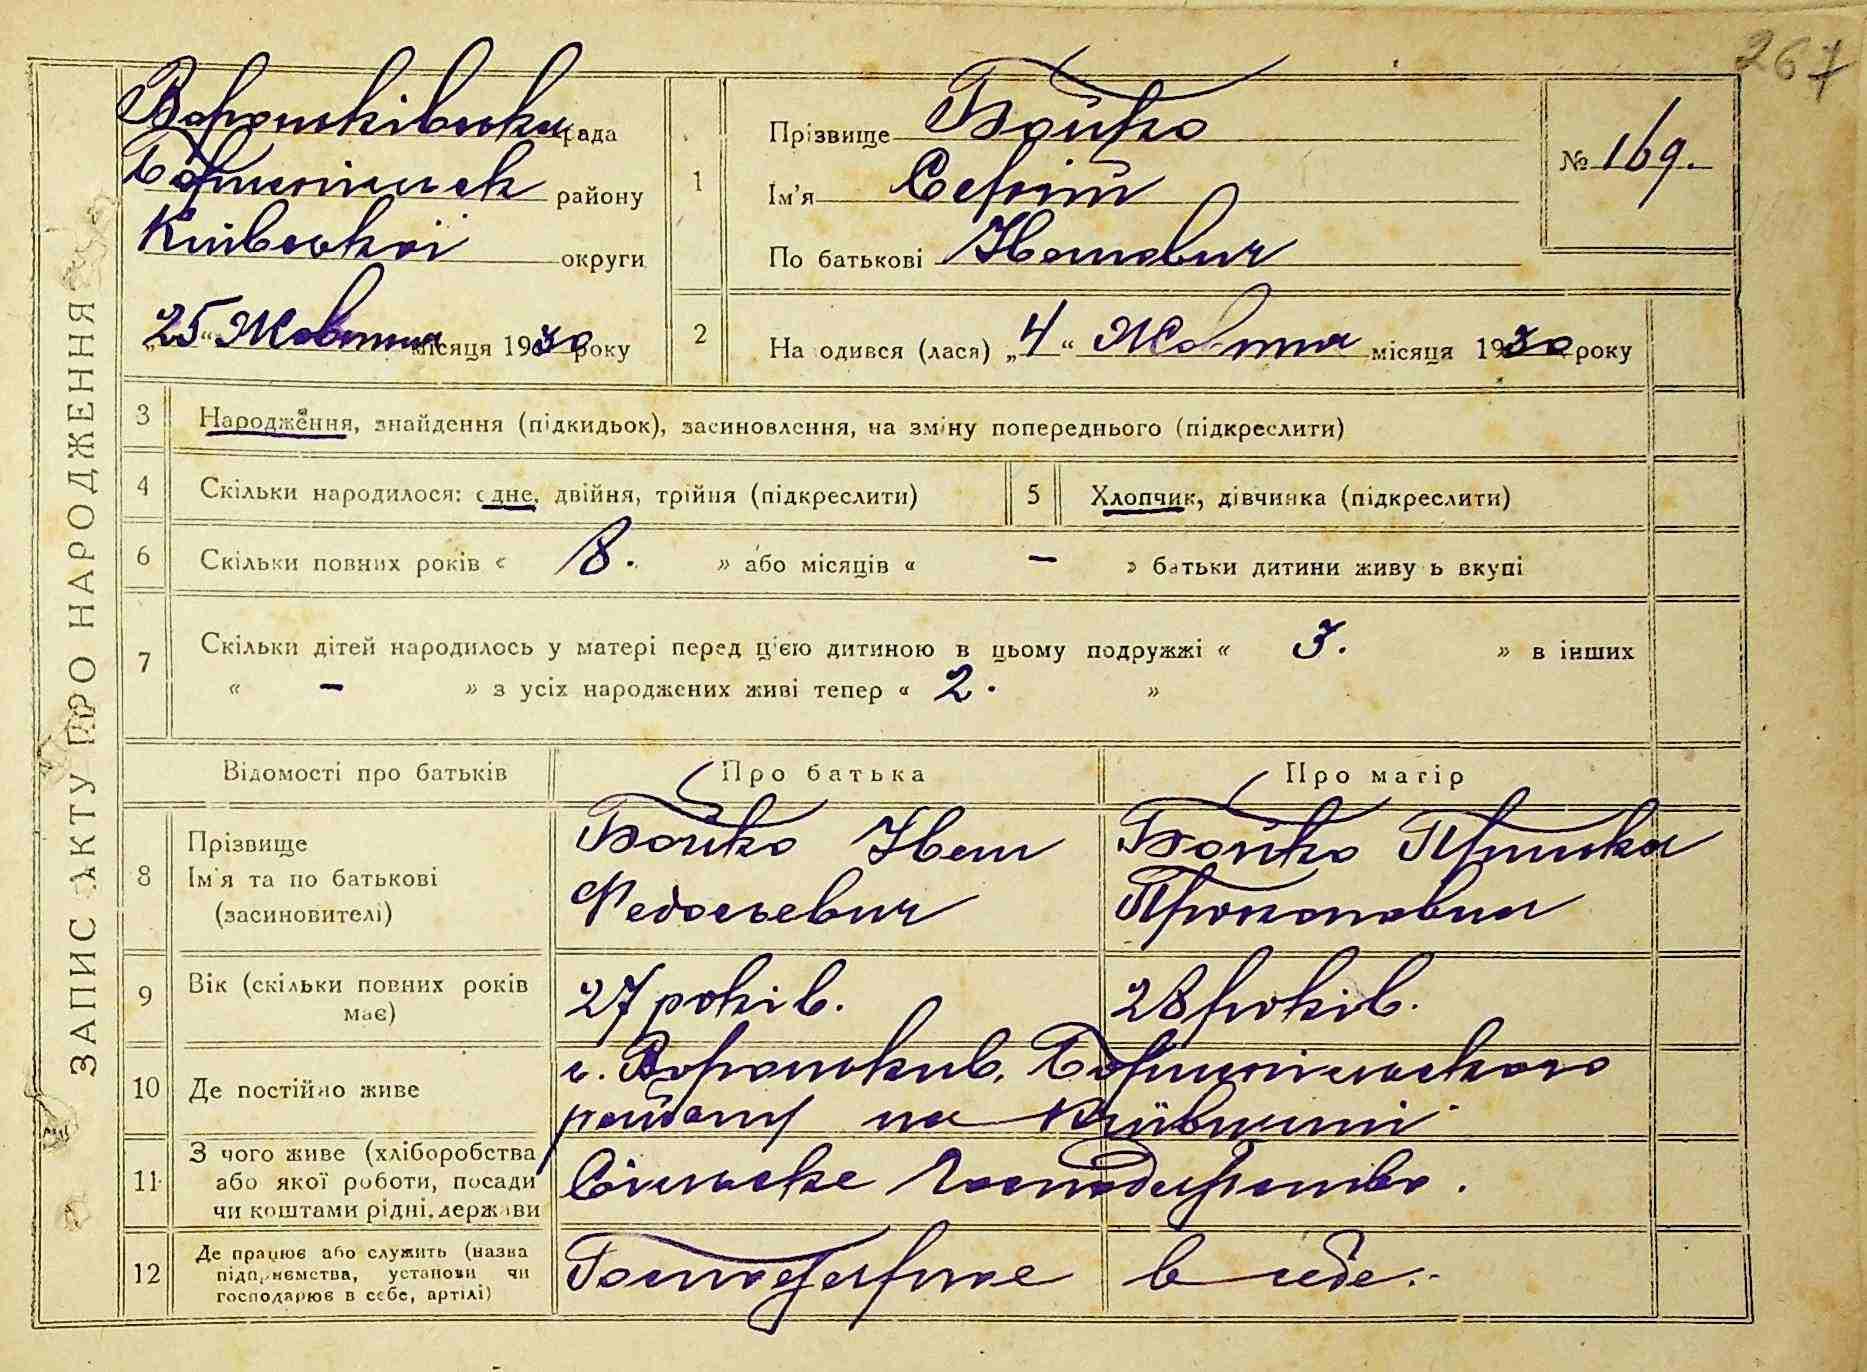 267
ЗАПИС АКТУ ПРО НАРОДЖЕННЯ
Вороньківська рада
Бориспільськ району
Київської округи
„25“ Жовтня місяця 1930 року
1
Прізвище Бойко
Ім'я Сергій
По батькові Іванович
№ 169.
2
На одився (лася) „4“ Жовтня місяця 1930 року
3 Народження, знайдення (підкидьок), засиновлення, на зміну попереднього (підкреслити)
4 Скільки народилося: одне, двійня, трійня (підкреслити)
5 Хлопчик, дівчинка (підкреслити)
6 Скільки повних років « 8. » або місяців « – » батьки дитини живу ь вкупі
7 Скільки дітей народилось у матері перед ц'єю дитиною в цьому подружжі « 3. » в інших
« – » з усіх народжених живі тепер « 2. »
Відомості про батьків Про батька Про матір
8 Прізвище
Ім'я та по батькові
(засиновителі)
Бойко Иван
Федосьевич
Бойко Приська
Прокоповна
9 Вік (скільки повних років
має)
27 років. 28 років.
10 Де постійно живе
с. Вороньків, Бориспільського
району на Київщині
11 З чого живе (хліборобства
або якої роботи, посади
чи коштами рідні, держави
Сільське Господарство.
12 Де працює або служить (назва
підприємства, установи чи
господарює в себе, артілі)
Господарює в себе.